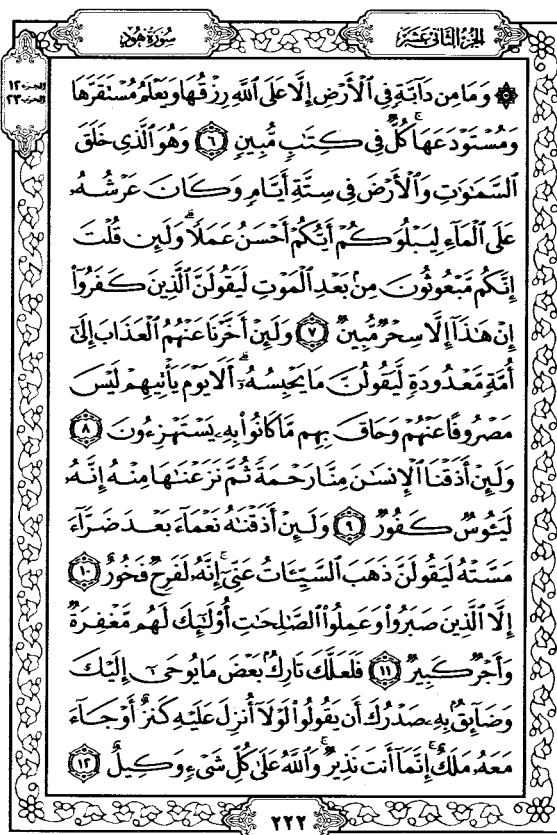 الجزء الثاني عشر
سورة هود
الجزء ١٢
الحزب ٢٣
۞ وَمَا مِن دَآبَّةٖ فِي ٱلۡأَرۡضِ إِلَّا عَلَى ٱللَّهِ رِزۡقُهَا وَيَعۡلَمُ مُسۡتَقَرَّهَا
وَمُسۡتَوۡدَعَهَاۚ كُلّٞ فِي كِتَٰبٖ مُّبِينٖ ٦ وَهُوَ ٱلَّذِي خَلَقَ
ٱلسَّمَٰوَٰتِ وَٱلۡأَرۡضَ فِي سِتَّةِ أَيَّامٖ وَكَانَ عَرۡشُهُۥ
عَلَى ٱلۡمَآءِ لِيَبۡلُوَكُمۡ أَيُّكُمۡ أَحۡسَنُ عَمَلٗاۗ وَلَئِن قُلۡتَ
إِنَّكُم مَّبۡعُوثُونَ مِنۢ بَعۡدِ ٱلۡمَوۡتِ لَيَقُولَنَّ ٱلَّذِينَ كَفَرُوٓاْ
إِنۡ هَٰذَآ إِلَّا سِحۡرٞ مُّبِينٞ ٧ وَلَئِنۡ أَخَّرۡنَا عَنۡهُمُ ٱلۡعَذَابَ إِلَىٰٓ
أُمَّةٖ مَّعۡدُودَةٖ لَّيَقُولُنَّ مَا يَحۡبِسُهُۥٓۗ أَلَا يَوۡمَ يَأۡتِيهِمۡ لَيۡسَ
مَصۡرُوفًا عَنۡهُمۡ وَحَاقَ بِهِم مَّا كَانُواْ بِهِۦ يَسۡتَهۡزِءُونَ ٨
وَلَئِنۡ أَذَقۡنَا ٱلۡإِنسَٰنَ مِنَّا رَحۡمَةٗ ثُمَّ نَزَعۡنَٰهَا مِنۡهُ إِنَّهُۥ
لَيَـُٔوسٞ كَفُورٞ ٩ وَلَئِنۡ أَذَقۡنَٰهُ نَعۡمَآءَ بَعۡدَ ضَرَّآءَ
مَسَّتۡهُ لَيَقُولَنَّ ذَهَبَ ٱلسَّيِّـَٔاتُ عَنِّيٓۚ إِنَّهُۥ لَفَرِحٞ فَخُورٌ ١٠
إِلَّا ٱلَّذِينَ صَبَرُواْ وَعَمِلُواْ ٱلصَّٰلِحَٰتِ أُوْلَٰٓئِكَ لَهُم مَّغۡفِرَةٞ
وَأَجۡرٞ كَبِيرٞ ١١ فَلَعَلَّكَ تَارِكُۢ بَعۡضَ مَا يُوحَىٰٓ إِلَيۡكَ
وَضَآئِقُۢ بِهِۦ صَدۡرُكَ أَن يَقُولُواْ لَوۡلَآ أُنزِلَ عَلَيۡهِ كَنزٌ أَوۡ جَآءَ
مَعَهُۥ مَلَكٌۚ إِنَّمَآ أَنتَ نَذِيرٞۚ وَٱللَّهُ عَلَىٰ كُلِّ شَيۡءٖ وَكِيلٌ ١٢
٢٢٢